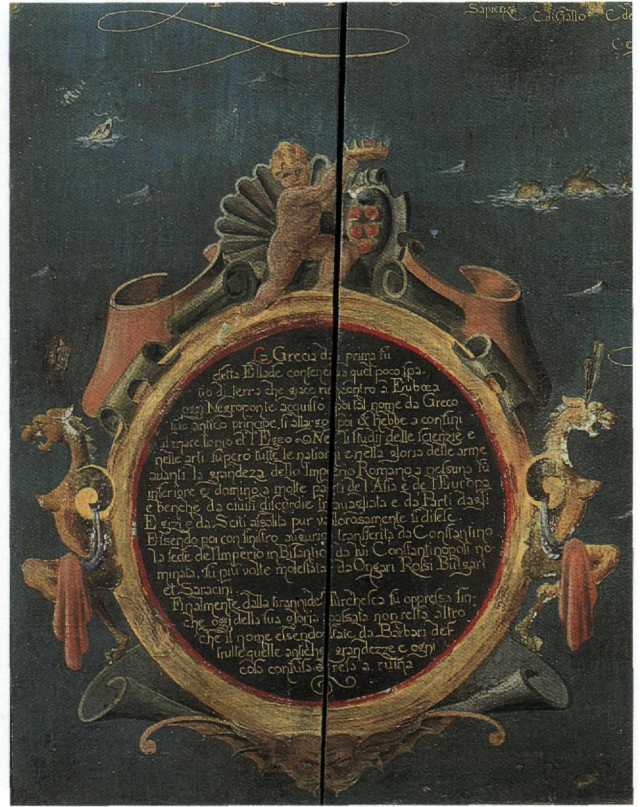 Sapienze C. di Gallo C. de
La Grecia da prima fu
detta Ellade conteneua quel poco spa-
tio di terra che giace rincontro à Eubœa
oggi Negroponte acquisto poi tal nome da Greco
suo antico principe, si allargò poi & hebbe a confini
il mare Ionio et l'Egeo Nelli studij delle scienzie e
nelle arti superò tutte le nationi e nella gloria delle arme
auanti la grandeza dello Imperio Romano a nessuna fù
inferiore e dominò a molte parti de l'Asia e de l'Europa
e benche da ciuili discordie trauagliata e da Parti dagli
Egizi e da Sciti assalita pur valorosamente si difese
Essendo poi con sinistro augurio transferita da Constantino
la sede de l'Imperio in Bisantio da lui Constantinopoli no-
minata, fu più volte molestata da Ongari Rossi Bulgari
et Saracini
Finalmente dalla tirannide Turchesca fu oppressa sin-
che oggi della sua gloria passata non resta altro
che il nome essendo state da Barbari des-
trutte quelle antiche grandezze e ogni
cosa confusa e resa a ruina